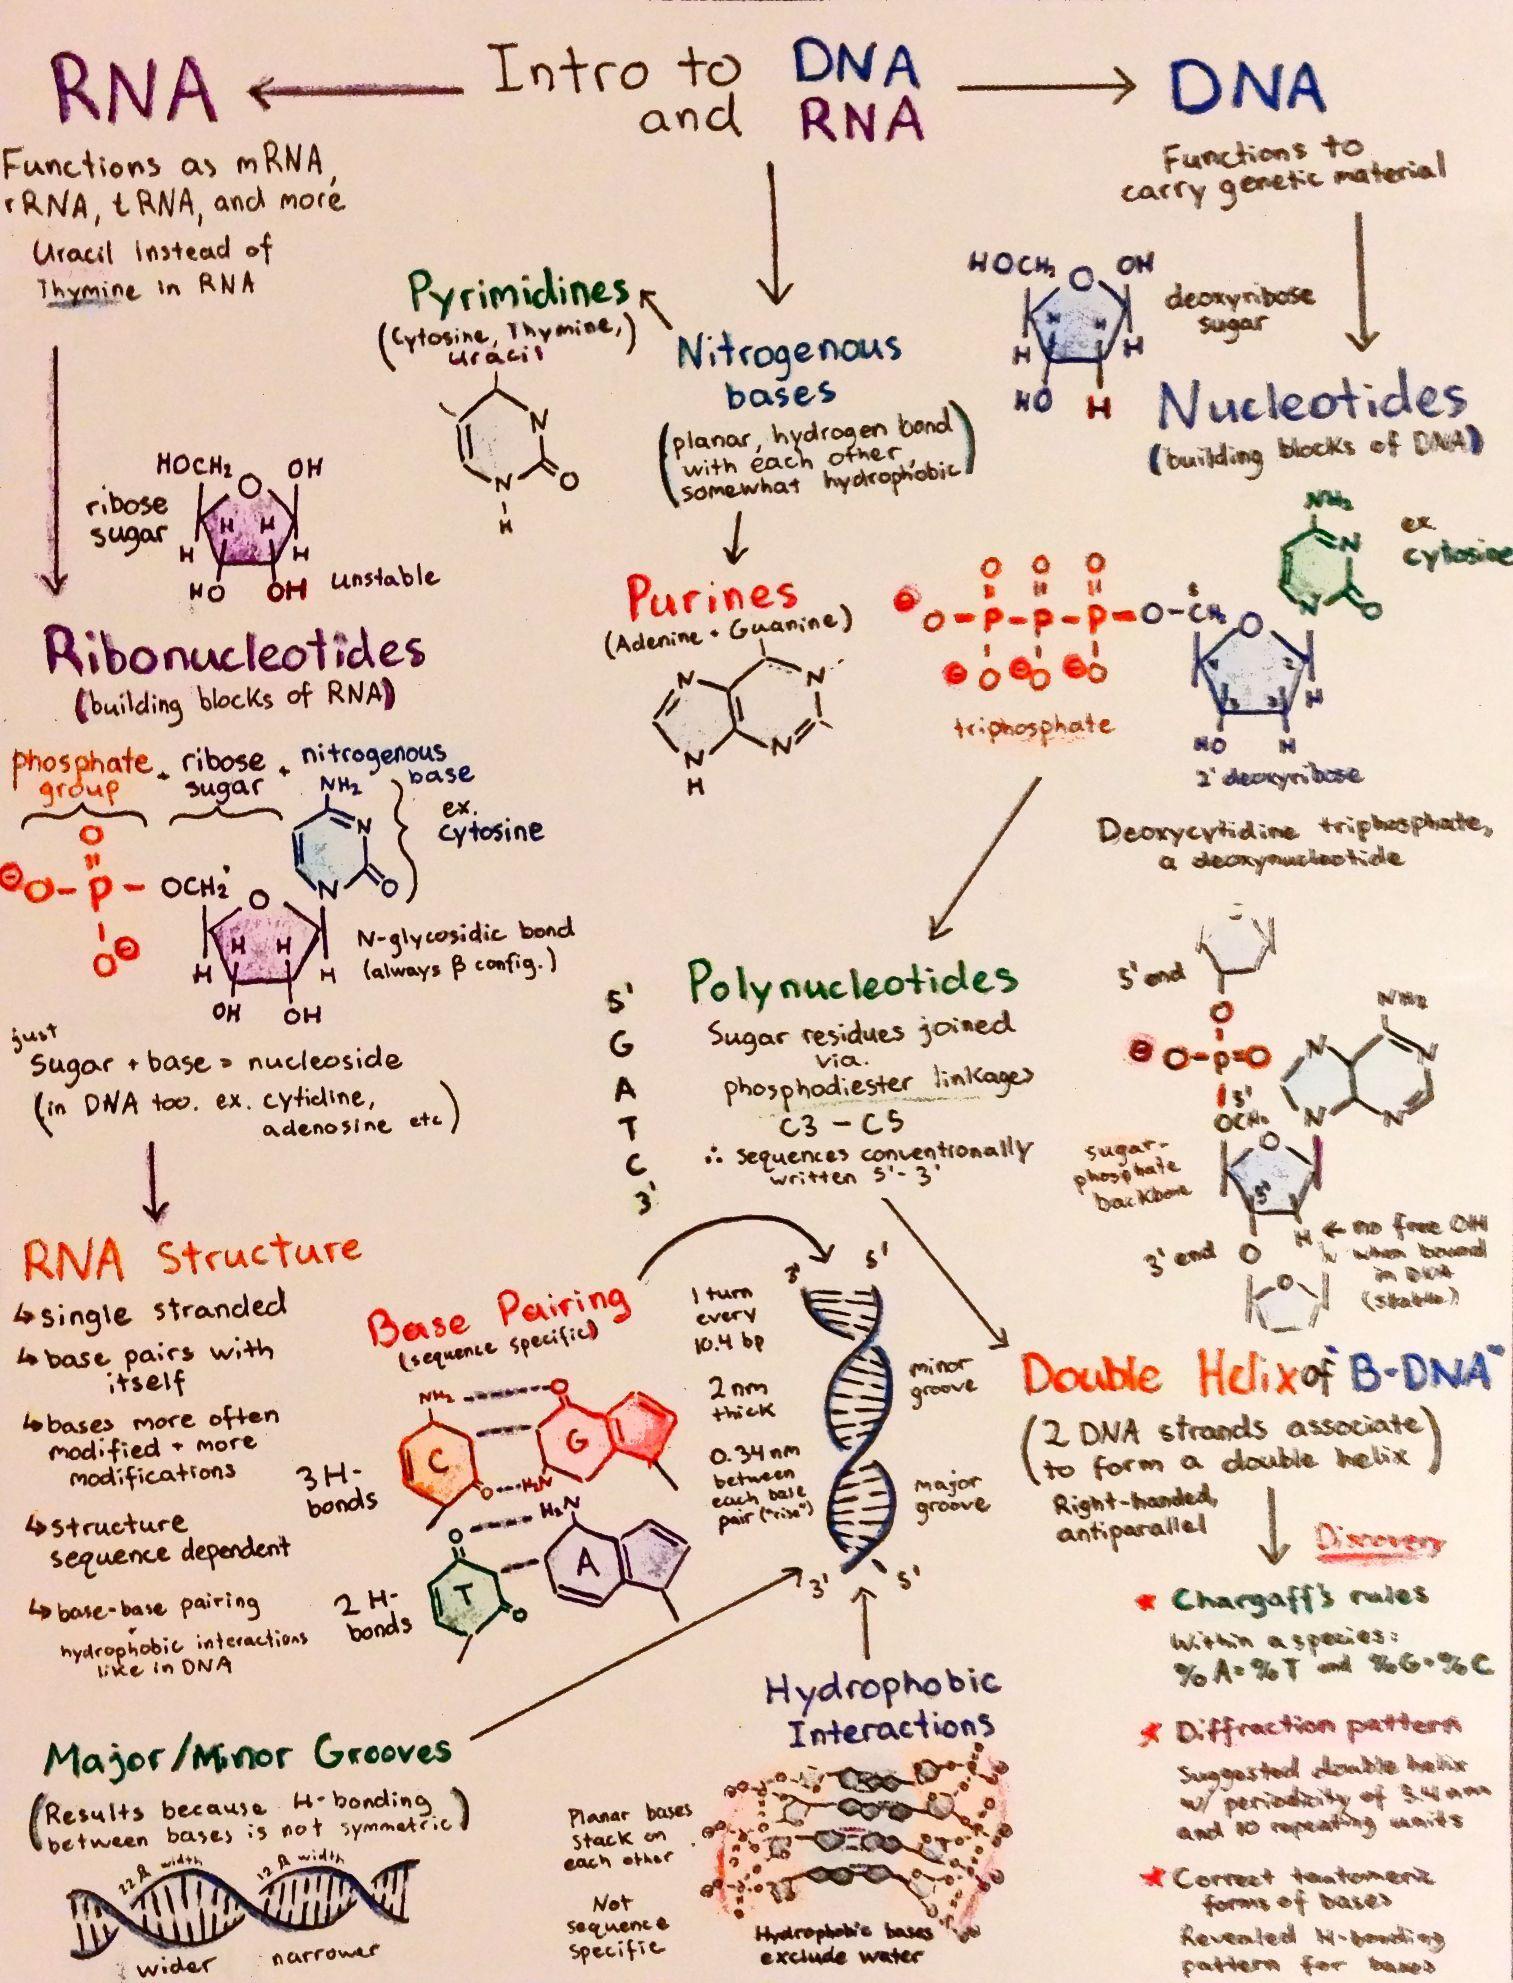 Intro to DNA
and RNA
RNA
Functions as mRNA,
rRNA, tRNA, and more
Uracil instead of
Thymine in RNA
ribose
sugar
HOCH₂
O
OH
H
H
H
H
HO
OH
unstable
Ribonucleotides
(building blocks of RNA)
phosphate
group
+
ribose
sugar
+
nitrogenous
base
NH₂
ex.
cytosine
N
N
O
O
⊖O-P-OCH₂
O⊖
O
H
H
H
H
OH
OH
N-glycosidic bond
(always β config.)
just
sugar + base = nucleoside
(in DNA too. ex. cytidine,
adenosine etc)
RNA Structure
↳ single stranded
↳ base pairs with
itself
↳ bases more often
modified + more
modifications
↳ structure
sequence dependent
↳ base-base pairing
+
hydrophobic interactions
like in DNA
Pyrimidines
(Cytosine, Thymine,
uracil)
N
N
O
H
Nitrogenous
bases
(planar, hydrogen bond
with each other,
somewhat hydrophobic)
Purines
(Adenine + Guanine)
N
N
N
N
H
DNA
Functions to
carry genetic material
HOCH₂
O
OH
H
H
H
H
HO
H
deoxyribose
sugar
Nucleotides
(building blocks of DNA)
NH₂
N
N
O
ex.
cytosine
O
O
O
⊖
O-P-P-P-O-CH₂
⊖O
⊖O
⊖O
O
H
HO
H
triphosphate
2' deoxyribose
Deoxycytidine triphosphate,
a deoxynucleotide
5'
G
A
T
C
3'
Polynucleotides
Sugar residues joined
via
phosphodiester linkages
C3 - C5
∴ sequences conventionally
written 5'-3'
5' end
O
⊖ O-P=O
5'
OCH₂
NH₂
N
N
N
N
O
sugar-
phosphate
backbone
3' end
O
H
← no free OH
when bound
in DNA
(stable)
O
Base Pairing
(sequence specific)
NH₂
O
C
G
O
H₂N
N
3 H-
bonds
O
H₂N
T
A
O
2 H-
bonds
3'
5'
1 turn
every
10.4 bp
2 nm
thick
0.34 nm
between
each base
pair ("rise")
minor
groove
major
groove
3'
5'
Double Helix of "B-DNA"
(2 DNA strands associate
to form a double helix)
Right-handed,
antiparallel
Discovery
★ Chargaff's rules
Within a species:
%A=%T and %G=%C
★ Diffraction pattern
Suggested double helix
w/ periodicity of 3.4 nm
and 10 repeating units
★ Correct tautomeric
forms of bases
Revealed H-bonding
pattern for bases
Major/Minor Grooves
(Results because H-bonding
between bases is not symmetric)
22 Å width
12 Å width
wider
narrower
Hydrophobic
Interactions
Planar bases
stack on
each other
Not
sequence
specific
Hydrophobic bases
exclude water